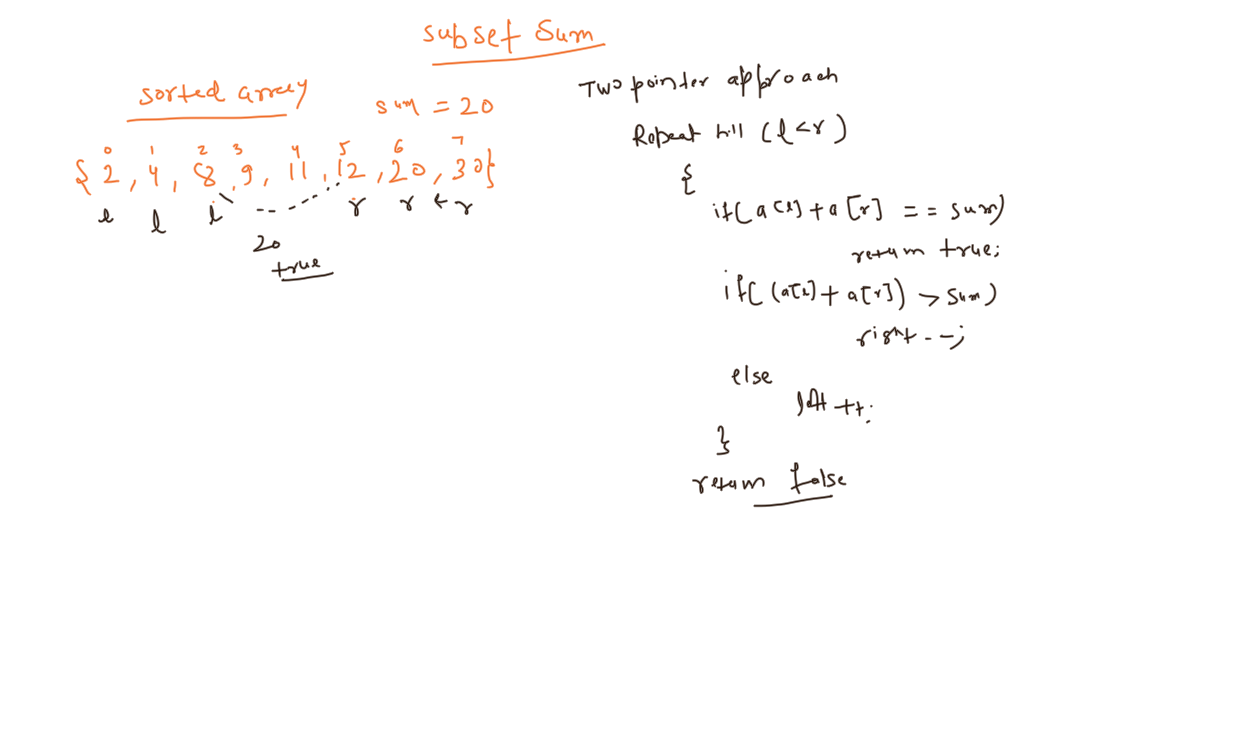 subset sum
sorted array
sum = 20
0 1 2 3 4 5 6 7
{ 2, 4, 8, 9, 11, 12, 20, 30}
l l l r r ← r
20
true
Two pointer approach
Repeat till (l<r)
{
if(a[l]+a[r] == sum)
return true;
if((a[l]+a[r]) > sum)
right--;
else
left ++;
}
return false